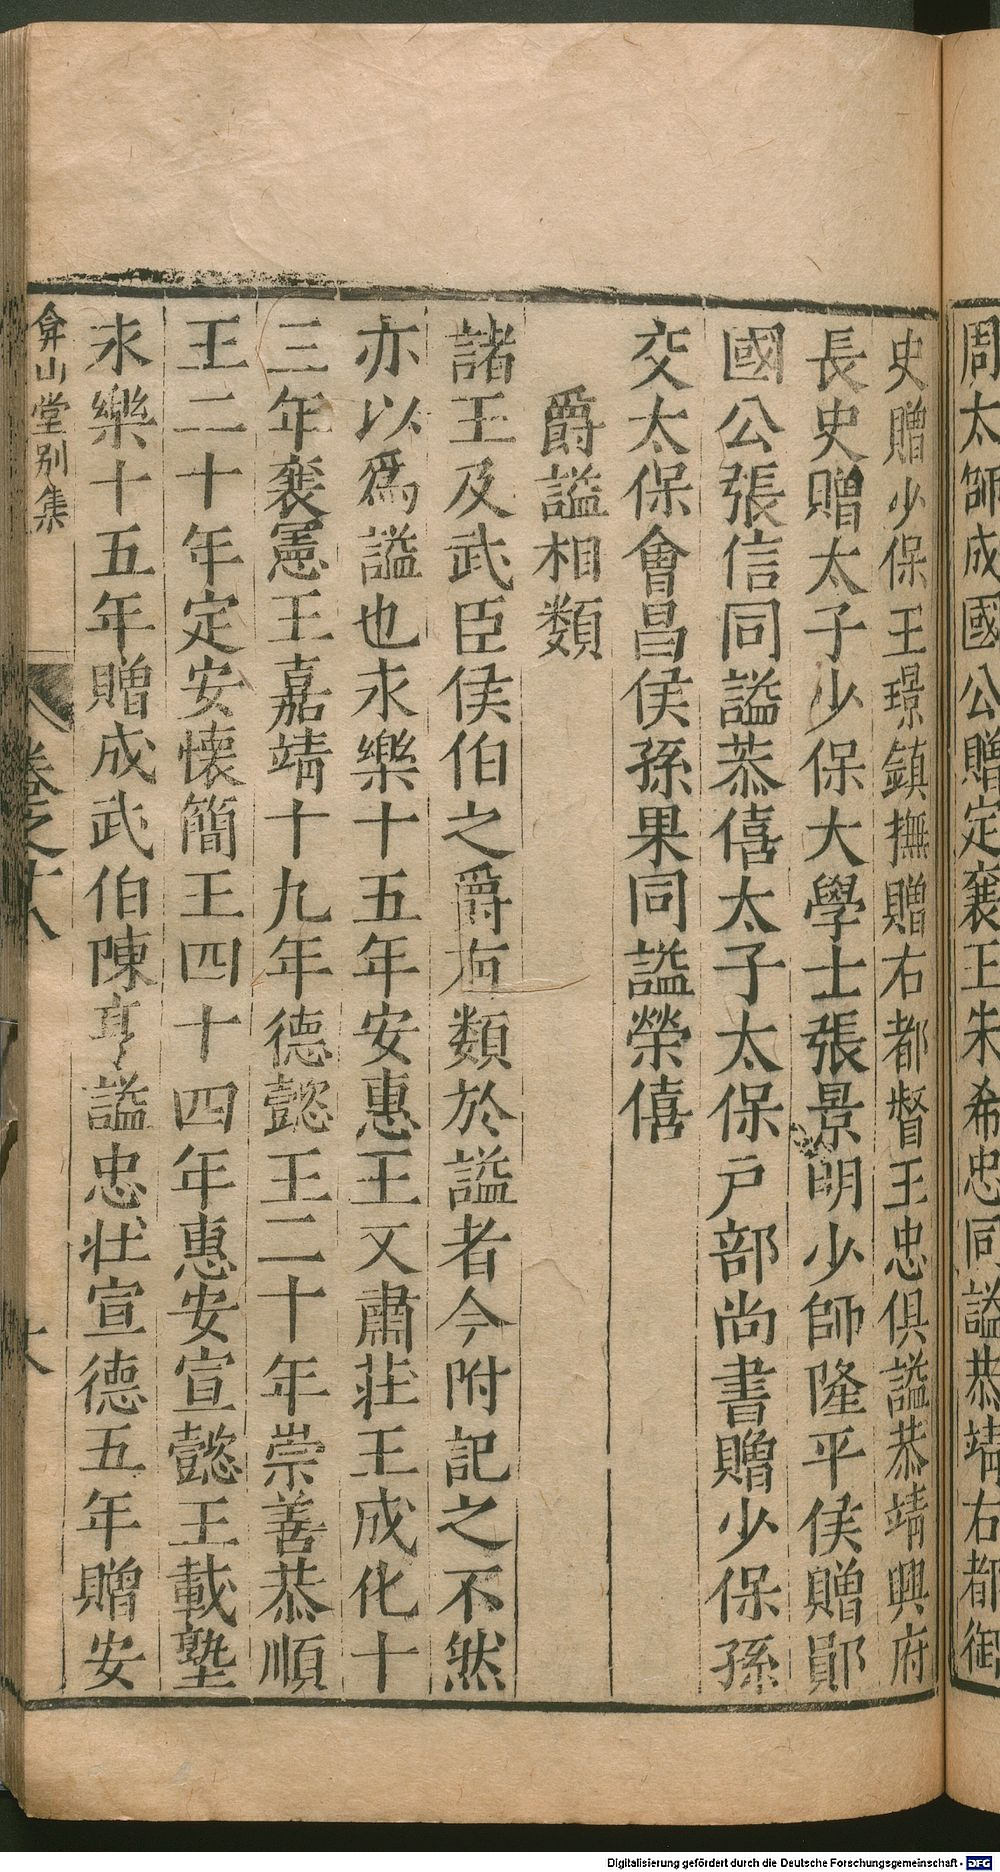 周太師成國公贈定襄王朱希忠同謚恭靖右都御
史贈少保王璟鎮撫贈右都督王忠俱謚恭靖興府
長史贈太子少保大學士張景明少師隆平侯贈鄖
國公張信同謚恭僖太子太保户部尚書贈少保孫
交太保會昌侯孫果同謚榮僖
爵謚相類
諸王及武臣侯伯之爵有類於謚者今附記之不然
亦以爲謚也永樂十五年安惠王又肅莊王成化十
三年襄憲王嘉靖十九年德懿王二十年崇善恭順
王二十年定安懷簡王四十四年惠安宣懿王載塾
永樂十五年贈成武伯陳亨謚忠壯宣德五年贈安
弇山堂别集
卷之十八
十
Digitalisierung gefördert durch die Deutsche Forschungsgemeinschaft - DFG